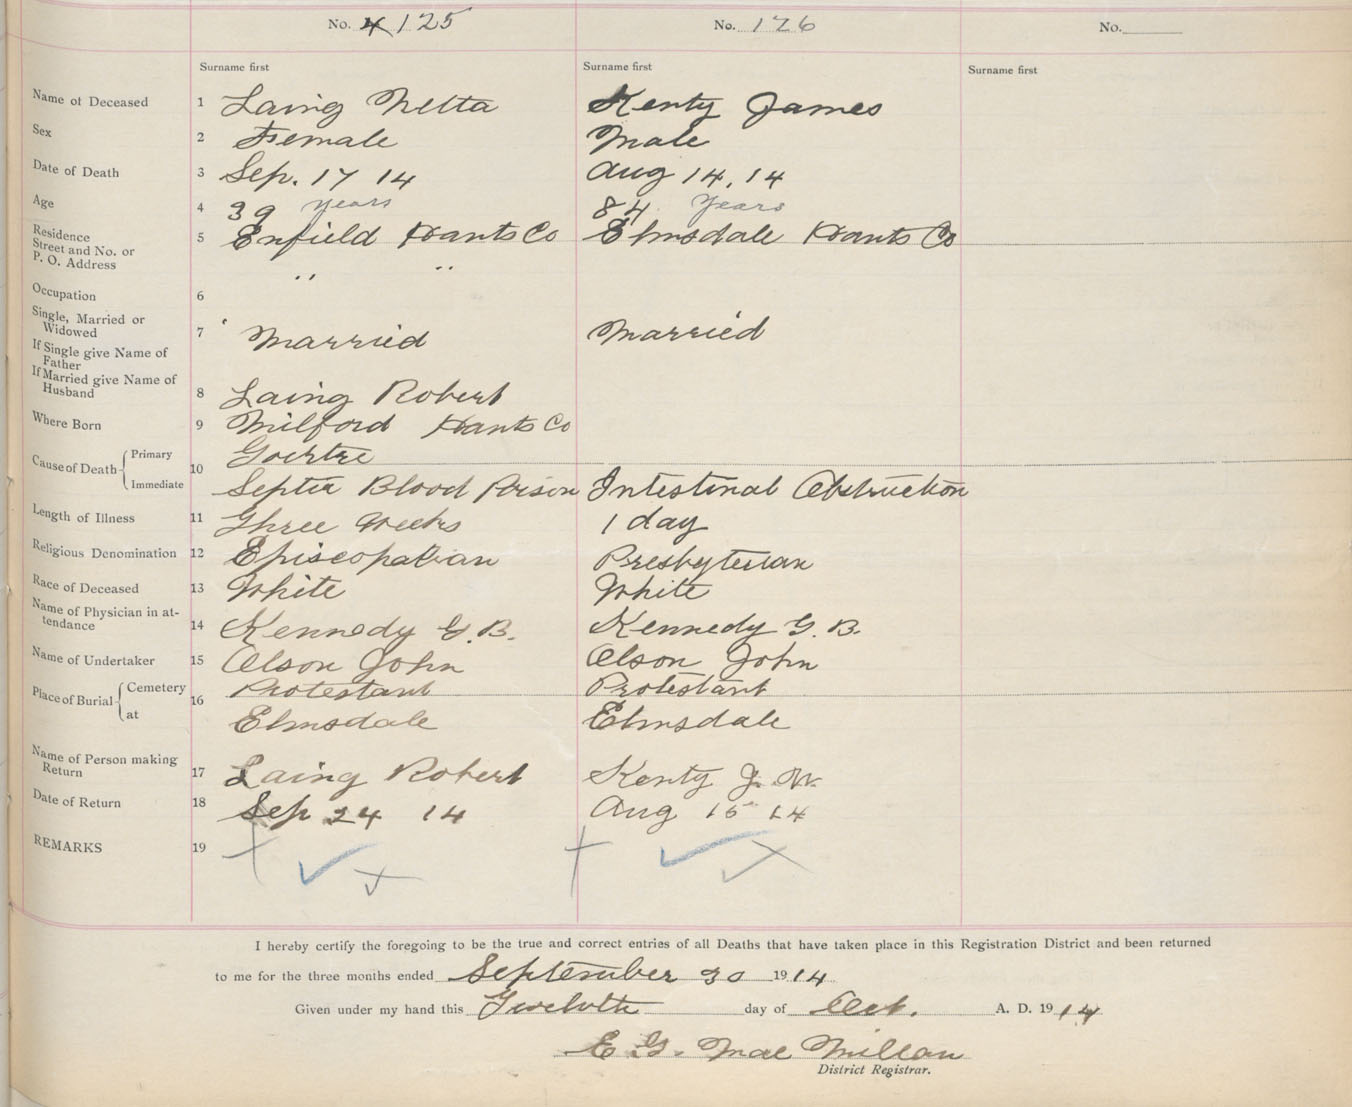 No. 4 125 No. 126 No.
Surname first Surname first Surname first
Name of Deceased 1 Laing Netta Kenty James
Sex 2 Female Male
Date of Death 3 Sep. 17 14 Aug 14, 14
Age 4 39 years 84 years
Residence
Street and No. or
P. O. Address 5 Enfield Hants Co Elmsdale Hants Co
" "
Occupation 6
Single, Married or
Widowed 7 Married Married
If Single give Name of
Father
If Married give Name of
Husband 8 Laing Robert
Where Born 9 Milford Hants Co
Cause of Death { Primary 10 Goirtre
Immediate Septia Blood Poison Intestinal Obstruction
Length of Illness 11 Three Weeks 1 day
Religious Denomination 12 Episcopalian Presbyterian
Race of Deceased 13 White White
Name of Physician in at-
tendance 14 Kennedy G. B. Kennedy G. B.
Name of Undertaker 15 Olson John Olson John
Place of Burial { Cemetery 16 Protestant Protestant
at Elmsdale Elmsdale
Name of Person making
Return 17 Laing Robert Kenty J. W.
Date of Return 18 Sep 24 14 Aug 15 14
REMARKS 19
I hereby certify the foregoing to be the true and correct entries of all Deaths that have taken place in this Registration District and been returned
to me for the three months ended September 30 1914
Given under my hand this Twelvth day of Oct. A. D. 1914
E G. Mac Millan
District Registrar.